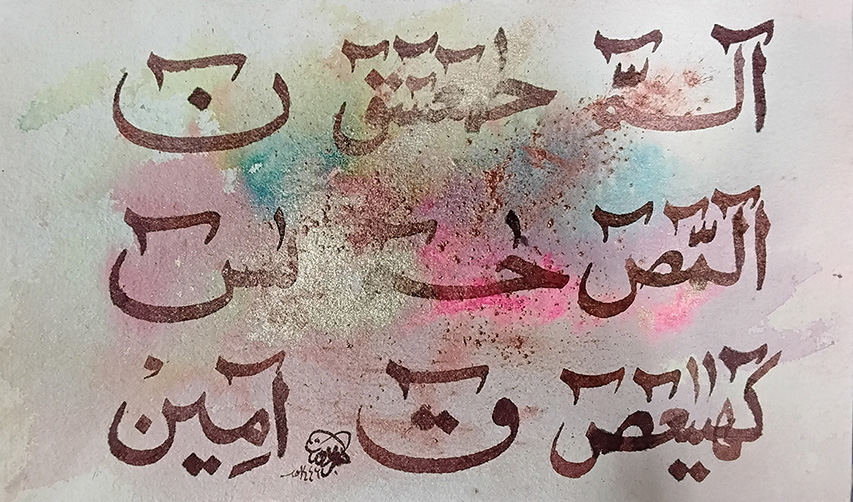 الٓمّٓ حٰمٓعٓسٓقٓ نٓ
الٓمّٓصٓ حٰمٓ يٰسٓ
كٓهٰيٰعٓصٓ قٓ آمِينْ